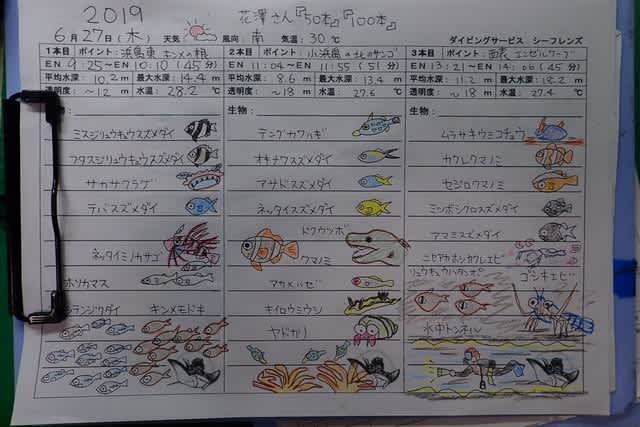 2019
花澤さん『50本』『100本』
6月27日(木) 天気 風向:南 気温:30℃ ダイビングサービス シーフレンズ
1本目 ポイント:浜島東 キンメの根
EN 9:25〜EN 10:10 (45分)
平均水深 10.2m 最大水深 14.4m
透明度 〜12m 水温 28.2℃
生物:
ミスジリュウキュウスズメダイ
フタスジリュウキュウスズメダイ
サカサクラゲ
デバスズメダイ
ネッタイミノカサゴ
ホソカマス
キンメモドキ
2本目 ポイント:小浜島の北のサンゴ
EN 11:04〜EN 11:55 (51分)
平均水深 8.6m 最大水深 13.4m
透明度 〜18m 水温 27.6℃
生物:
テングカワハギ
オキナワスズメダイ
アサドスズメダイ
ネッタイスズメダイ
ドクウツボ
クマノミ
アカメハゼ
キイロウミウシ
ヤドカリ
3本目 ポイント:
EN 13:21〜EN 14:06 (45分)
平均水深 11.2m 最大水深 18.2m
透明度 〜18m 水温 27.4℃
生物:
ムラサキウミコチョウ
カクレクマノミ
セジロクマノミ
ミツボシクロスズメダイ
アマミスズメダイ
リュウキュウハタンポ
ゴシキエビ
水中トンネル